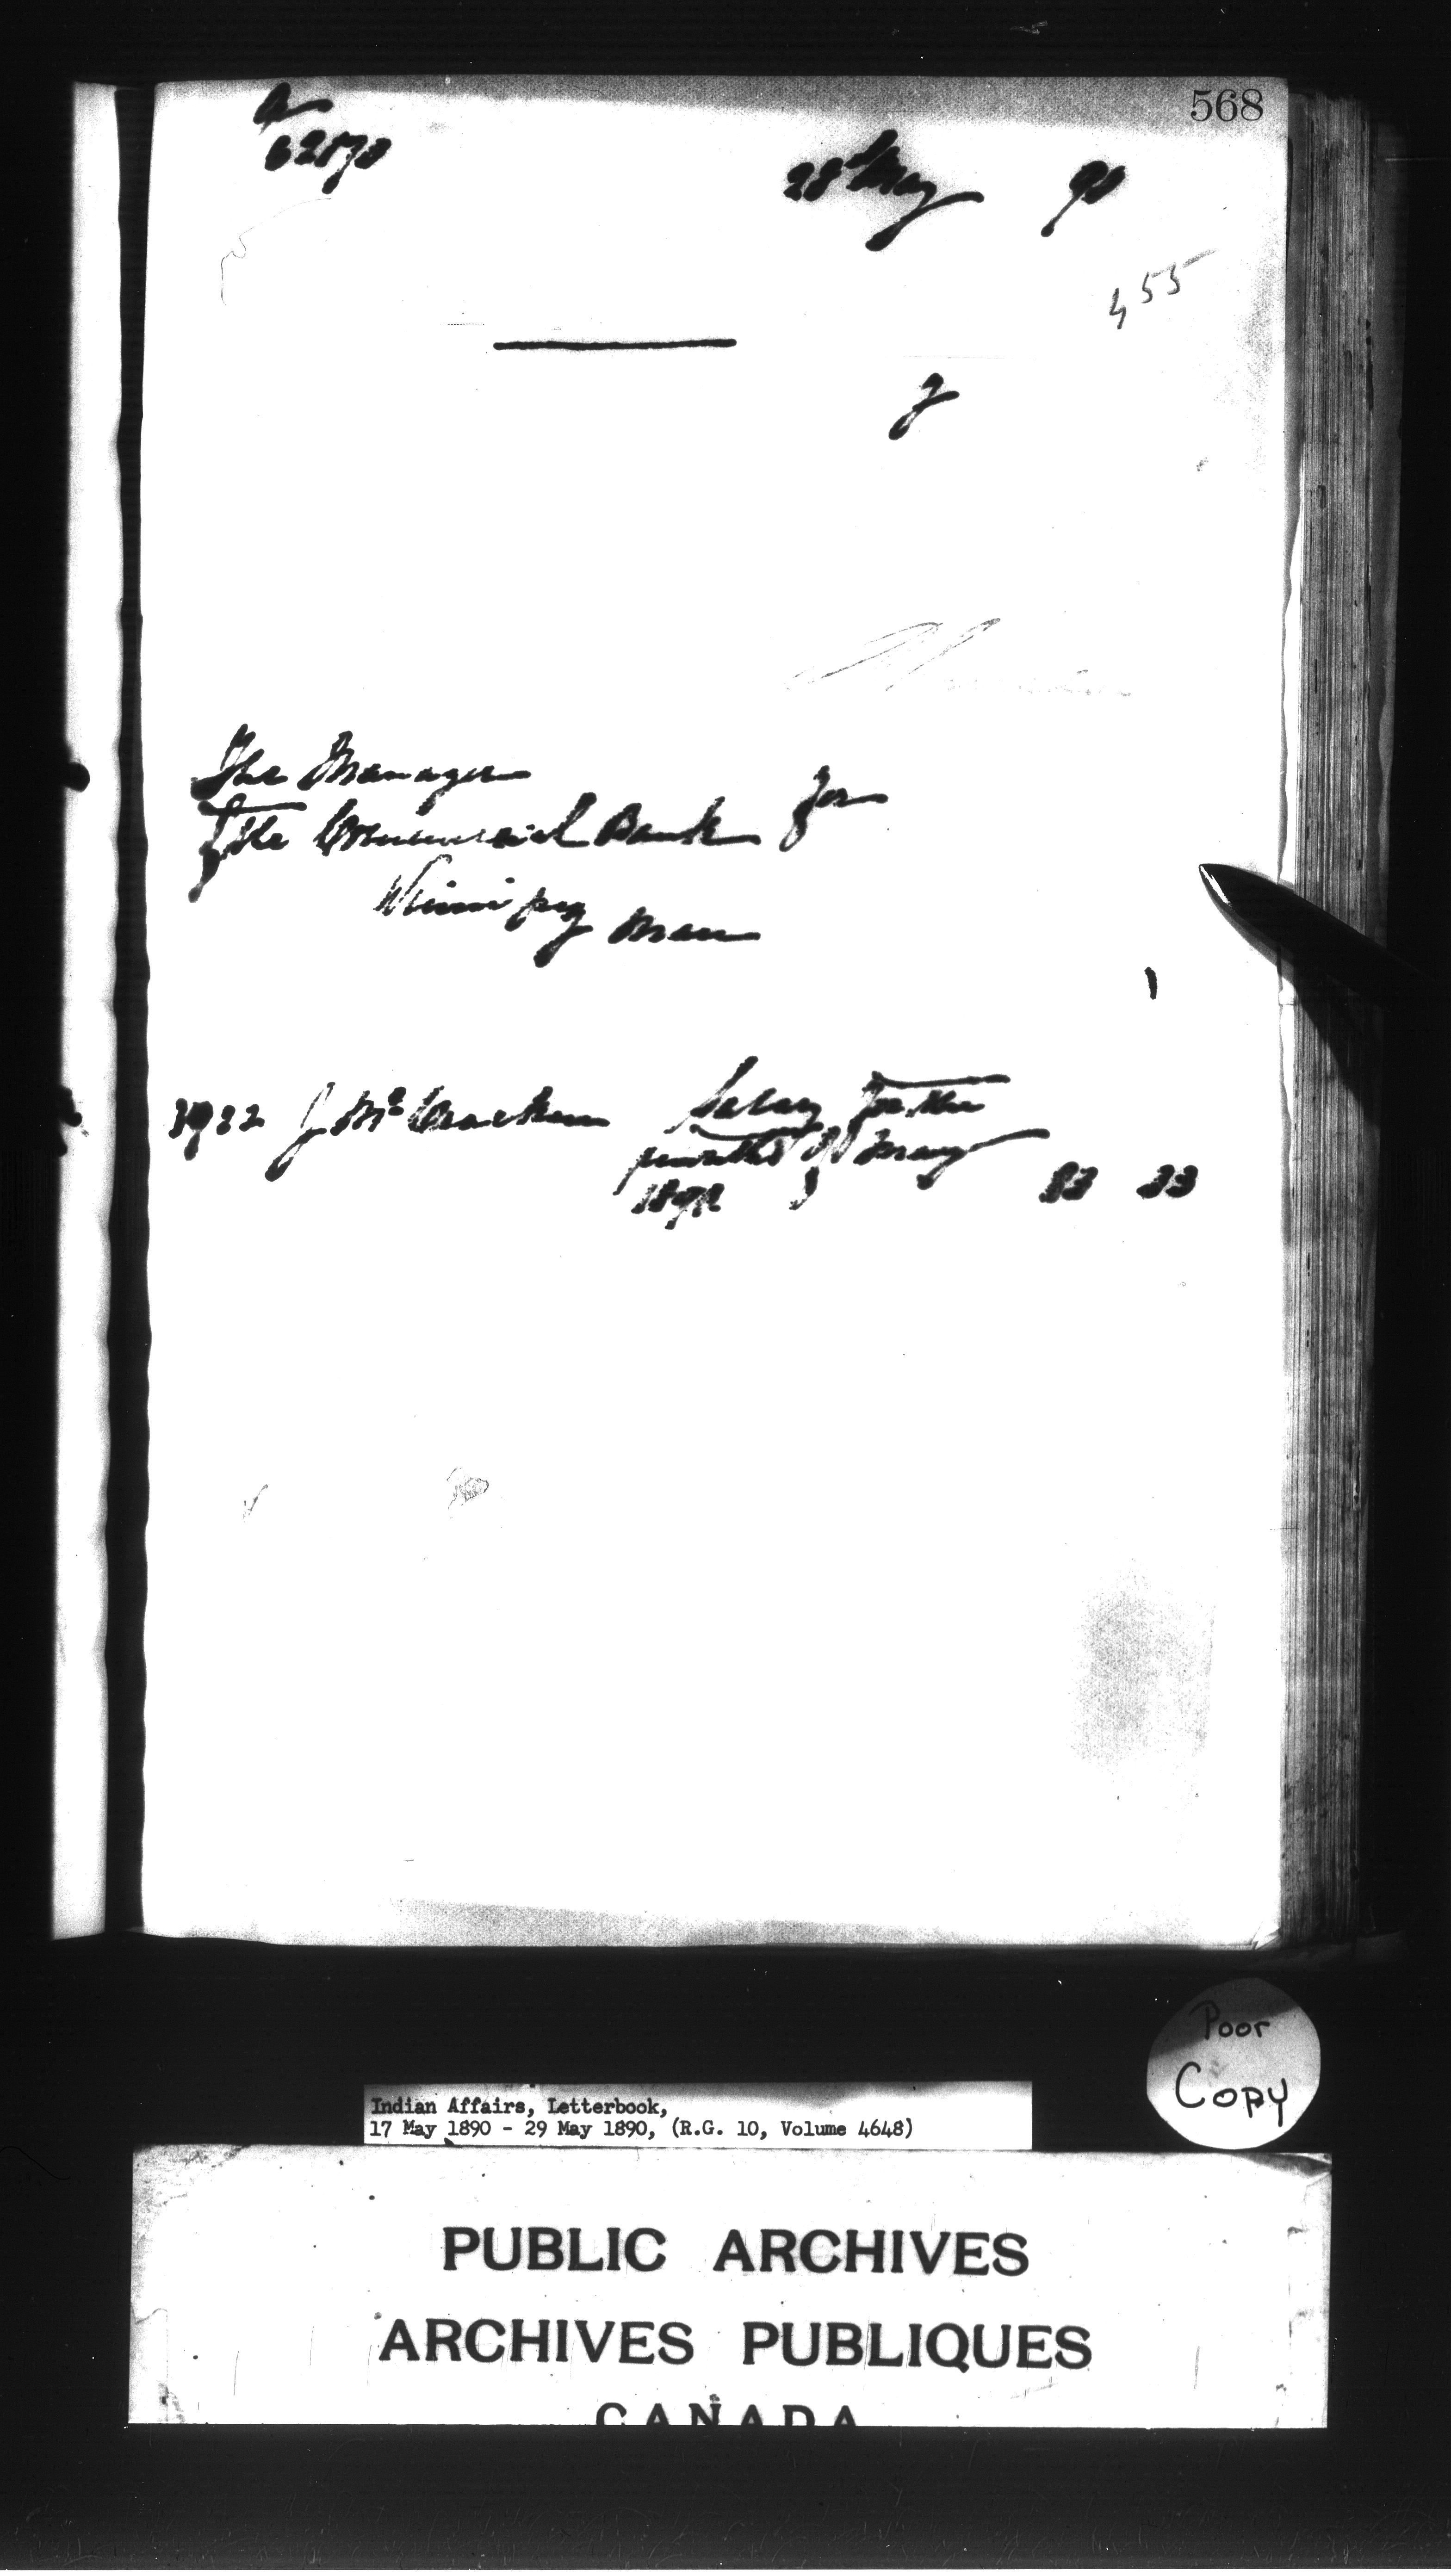 568
28 May 90
455
The Manager
of the Commercial Bank for
Winnipeg Man
1922 J McCracken Salary for the
month of May
1890 83 33
Poor
Copy
Indian Affairs, Letterbook,
17 May 1890 - 29 May 1890, (R.G. 10, Volume 4648)
PUBLIC ARCHIVES
ARCHIVES PUBLIQUES
CANADA